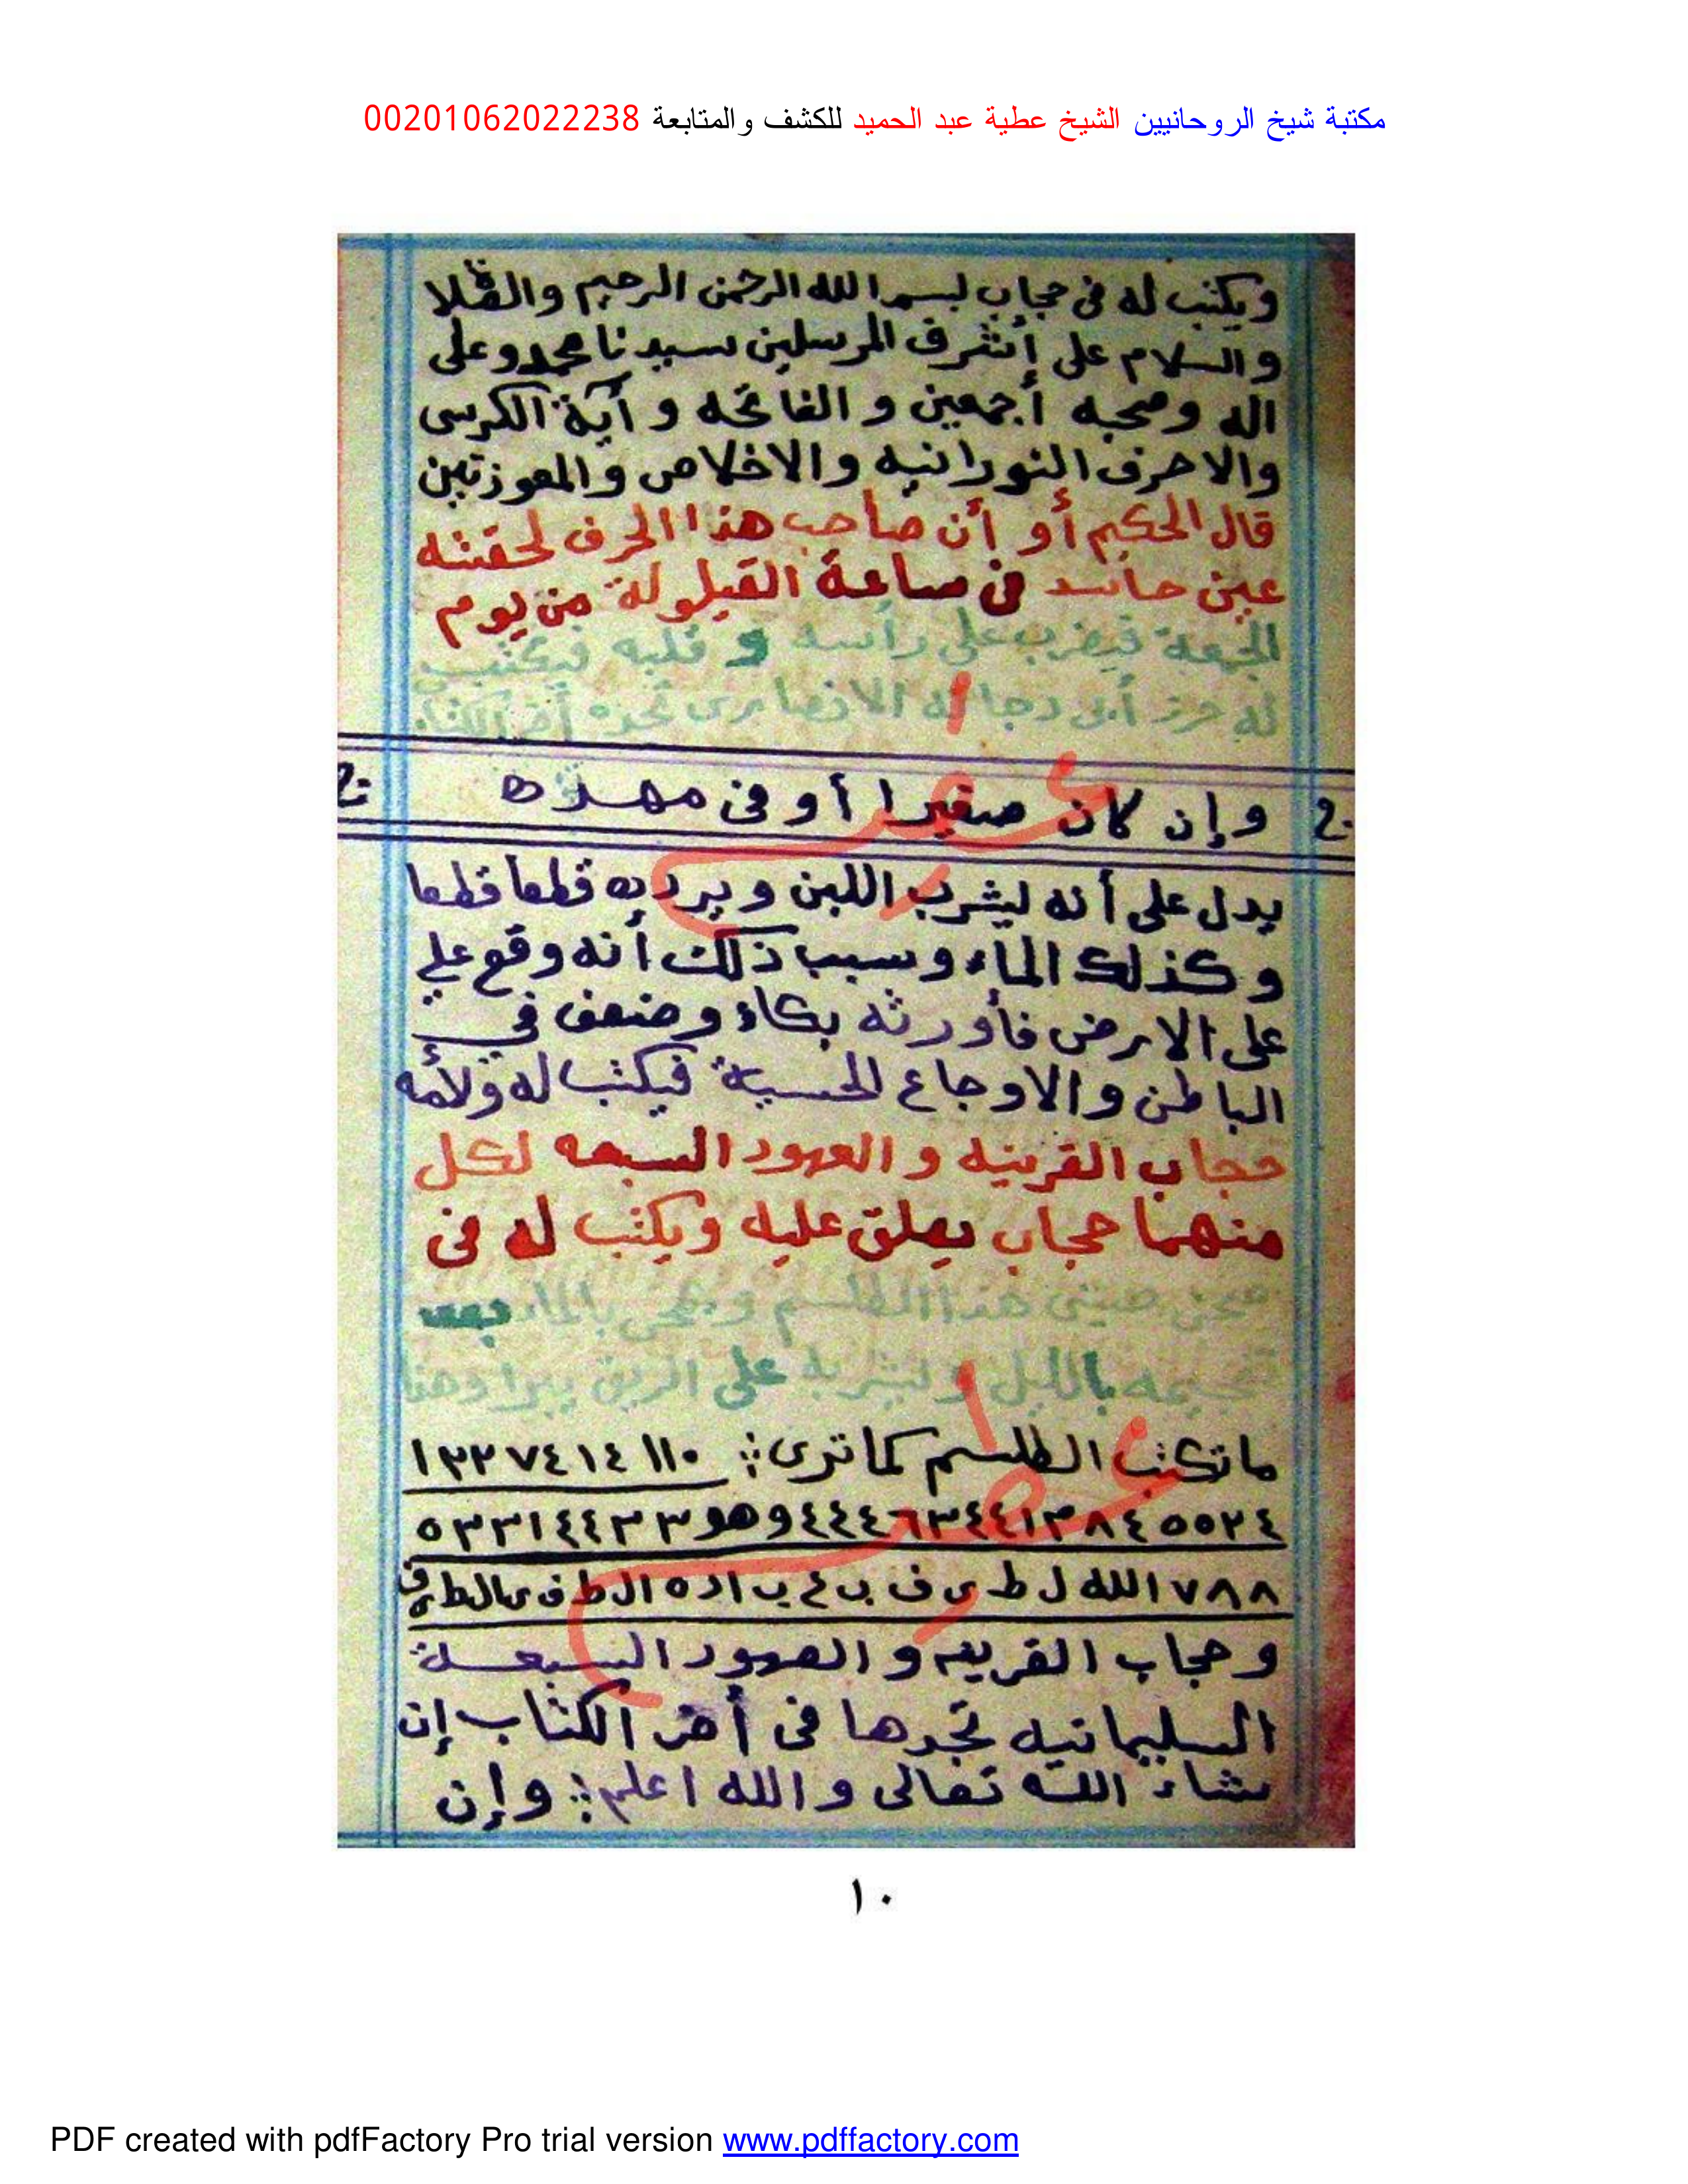 مكتبة شيخ الروحانيين الشيخ عطية عبد الحميد للكشف والمتابعة 00201062022238
ويكتب له فى حجاب بسم الله الرحمن الرحيم والصلاة
والسلام على أشرف المرسلين سيدنا محمد وعلى
اله وصحبه أجمعين و الفاتحه و آية الكرسى
والاحرف النورانيه والاخلاص والمعوزتين
قال الحكيم أو أن صاحب هذا الحرف لحقته
عين حاسد فى ساعة القيلولة من يوم
الجمعة فيضرب على رأسه و قلبه فيكتب
له حرز أبى دجانه الانصارى تجده أخر الكتاب
وإن كان صغيرا أو فى مهده
يدل على أنه يشرب اللبن ويرده قطعا قطعا
وكذلك الماء وسبب ذلك أنه وقع علي
على الارض فأورثه بكاء وضعف في
الباطن والاوجاع الحسية فيكتب له ولأمه
حجاب القرينه و العهود السبعه لكل
منهما حجاب يعلق عليه ويكتب له فى
صحن صينى هذا الطلسم ويمحى بالماء بعد
تنجيمه بالليل ويشربه على الريق يبرا وهذا
ما تكتب الطلسم كما ترى: ١١٠ ١٤ ٧٤ ١٣٢
٥٥٢٤ ٨٤ ١٣ ٦٣٤٤ ٤٤٤ وهو ٣ ٥٣٣١٤٤٣
٧٨٨ ١ الله ل ط ى ف ب ع ب ا د ه
وحجاب القرينه و العهود السبعة
السليمانيه تجدها فى أخر الكتاب إن
شاء الله تعالى والله اعلم: وإن
١٠
PDF created with pdfFactory Pro trial version www.pdffactory.com